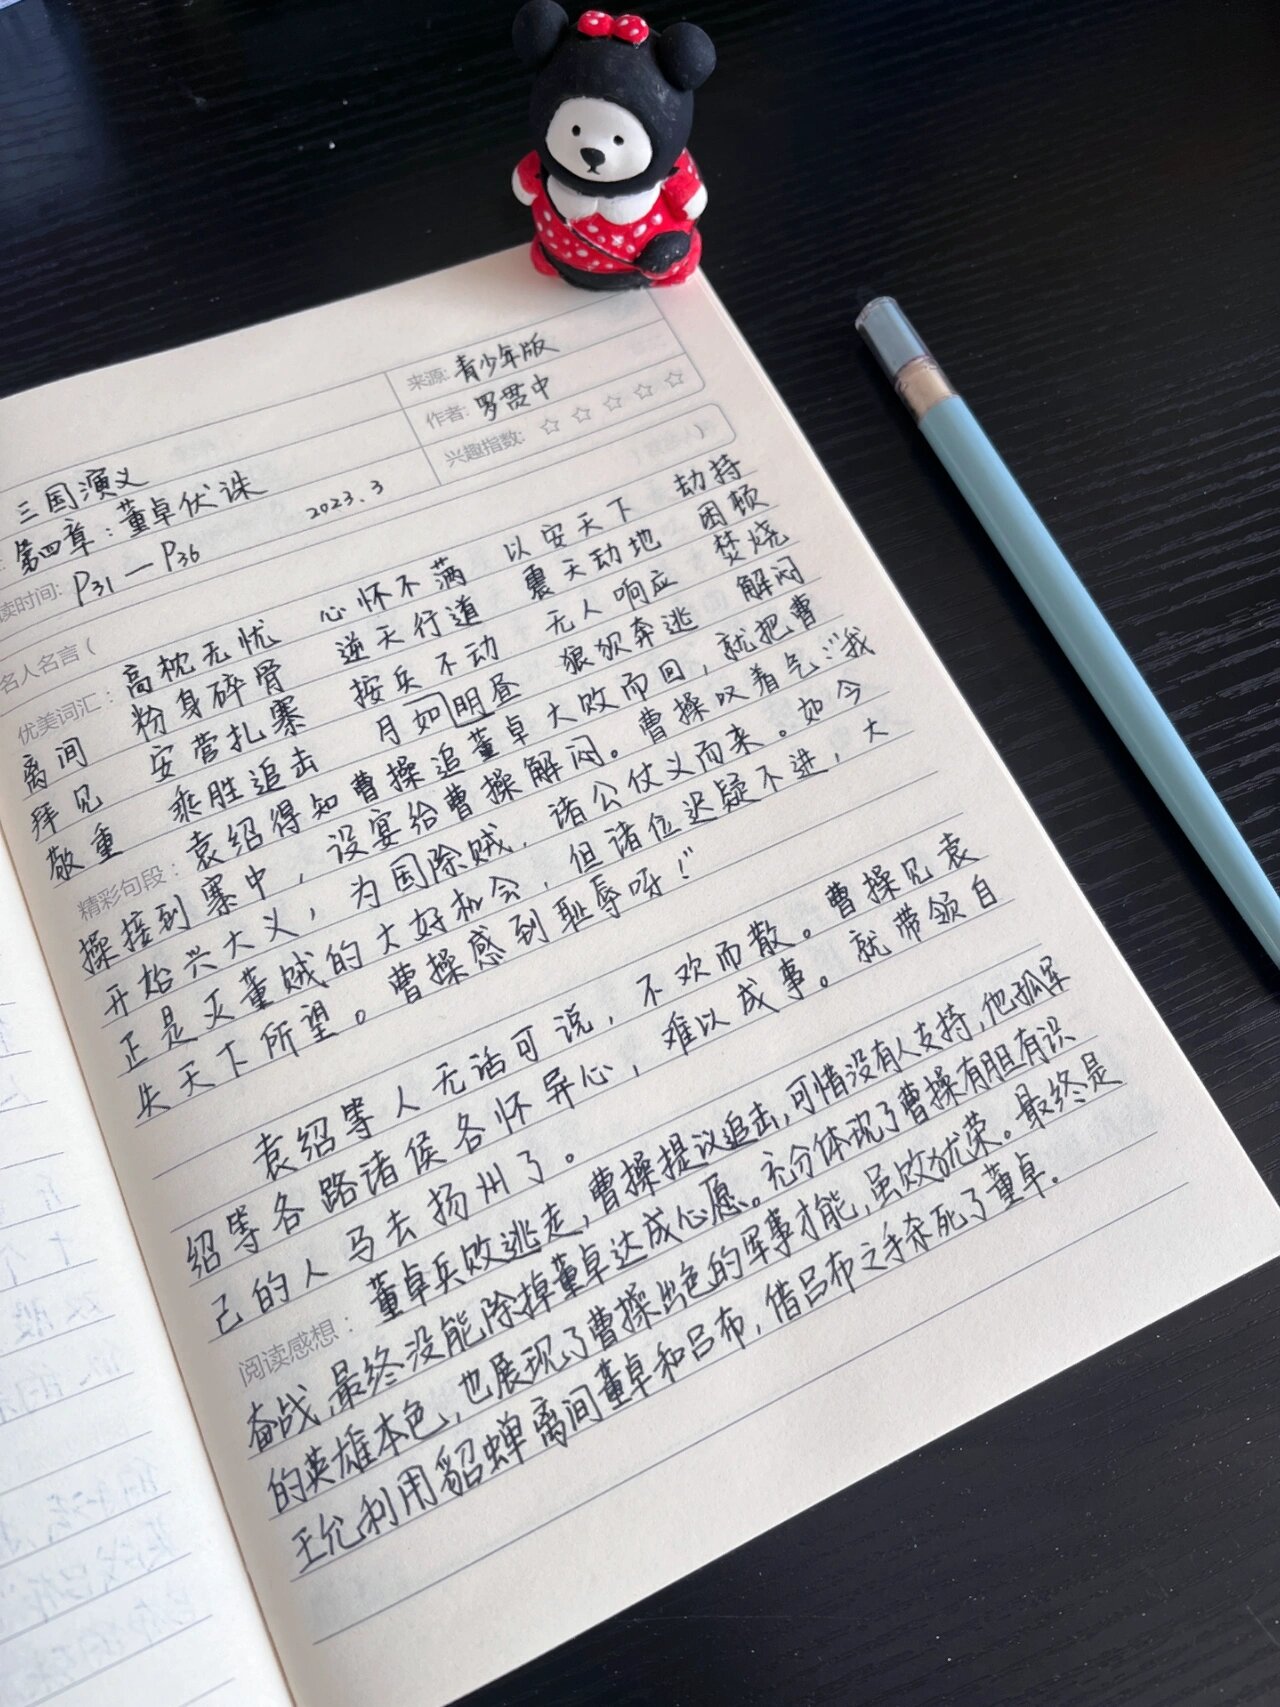 三国演义
来源: 青少年版
第四章: 董卓伏诛
作者: 罗贯中
读时间: P31—P36 2023.3
兴趣指数: ☆ ☆ ☆ ☆ ☆
名人名言( )
优美词汇: 高枕无忧 心怀不满 以安天下 劫持
离间 粉身碎骨 逆天行道 震天动地 困顿
拜见 安营扎寨 按兵不动 无人响应 焚烧
敬重 乘胜追击 月如明昼 狼狈奔逃 解闷
精彩句段: 袁绍得知曹操追董卓大败而回,就把曹
操接到寨中,设宴给曹操解闷。曹操叹着气:“我
开始兴大义,为国除贼,诸公仗义而来。如今
正是灭董贼的大好机会,但诸位迟疑不进,大
失天下所望。曹操感到耻辱呀!”
袁绍等人无话可说,不欢而散。曹操见袁
绍等各路诸侯各怀异心,难以成事。就带领自
己的人马去扬州了。
阅读感想: 董卓兵败逃走,曹操提议追击,可惜没有人支持,他孤军
奋战,最终没能除掉董卓达成心愿。充分体现了曹操有胆有识
的英雄本色,也展现了曹操出色的军事才能,虽败犹荣。最终是
王允利用貂蝉离间董卓和吕布,借吕布之手杀死了董卓.